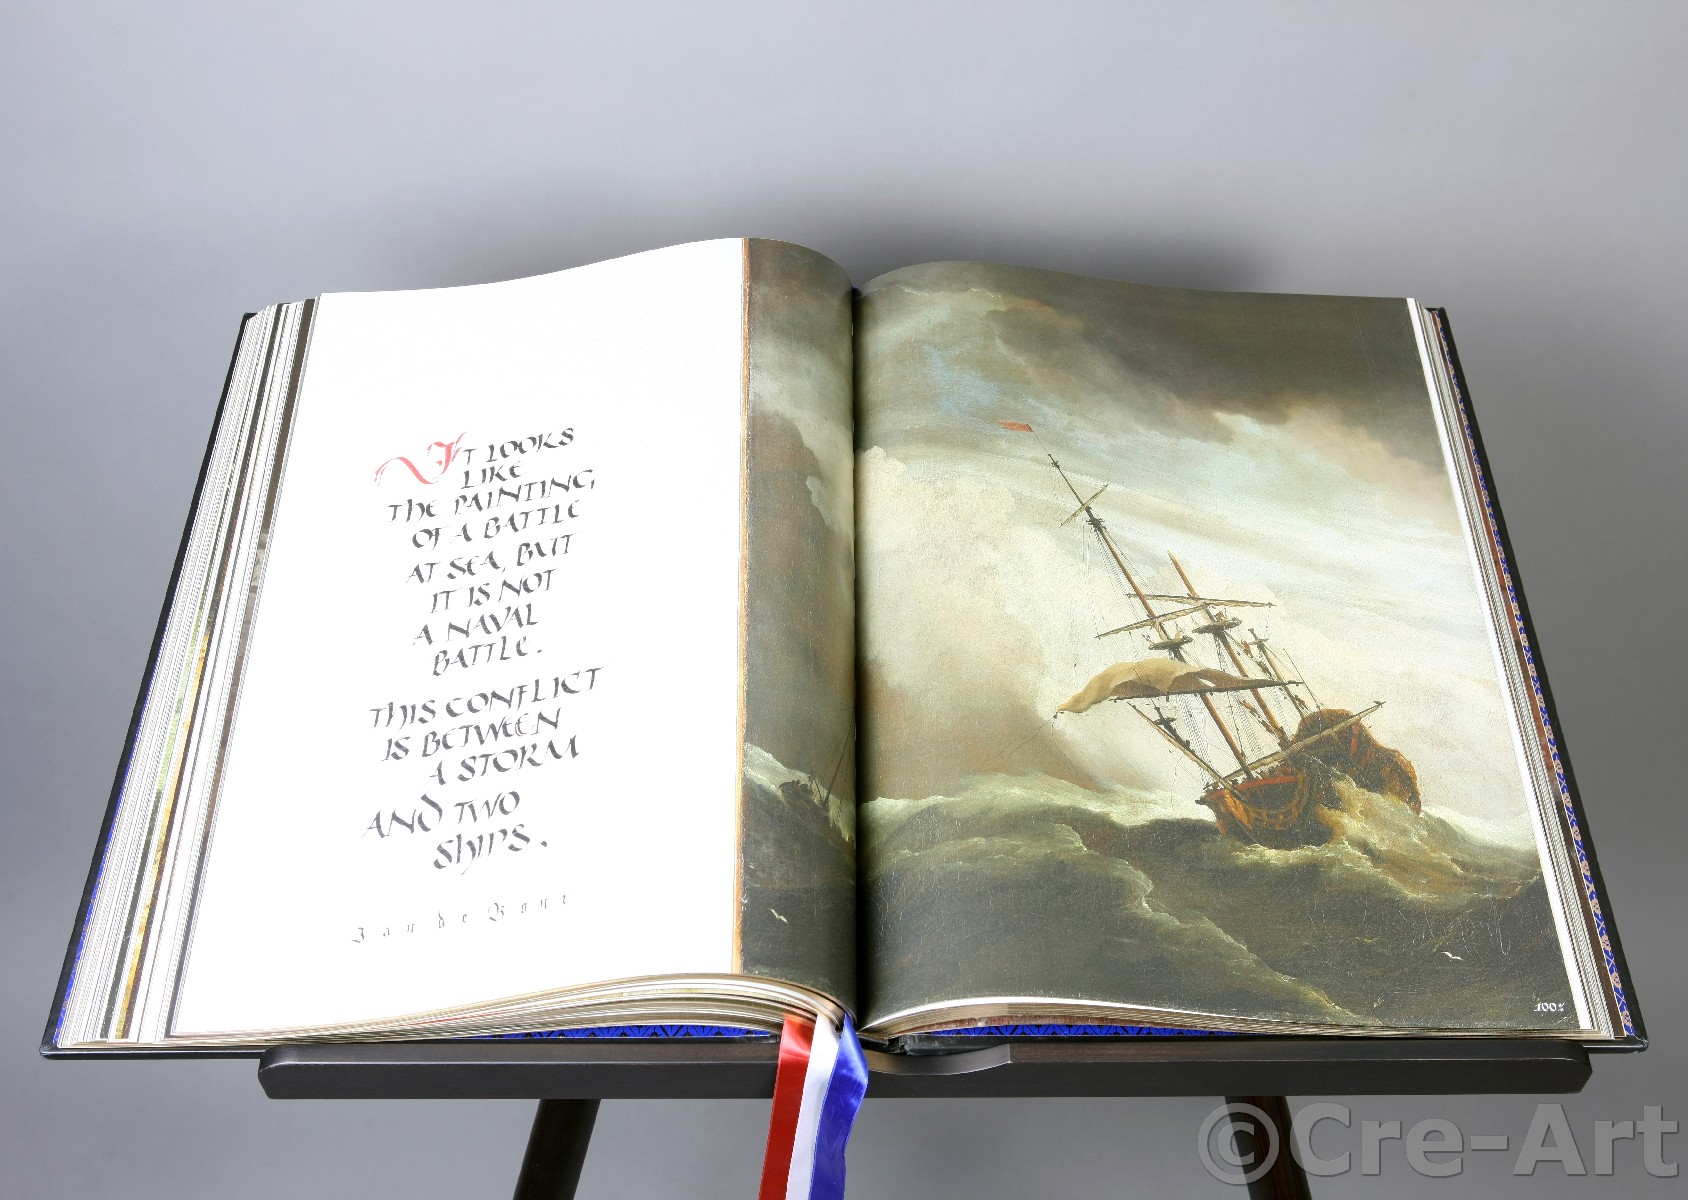 IT LOOKS
LIKE
THE PAINTING
OF A BATTLE
AT SEA, BUT
IT IS NOT
A NAVAL
BATTLE.
THIS CONFLICT
IS BETWEEN
A STORM
AND TWO
SHIPS.
Jan de Bont
100%
©Cre-Art